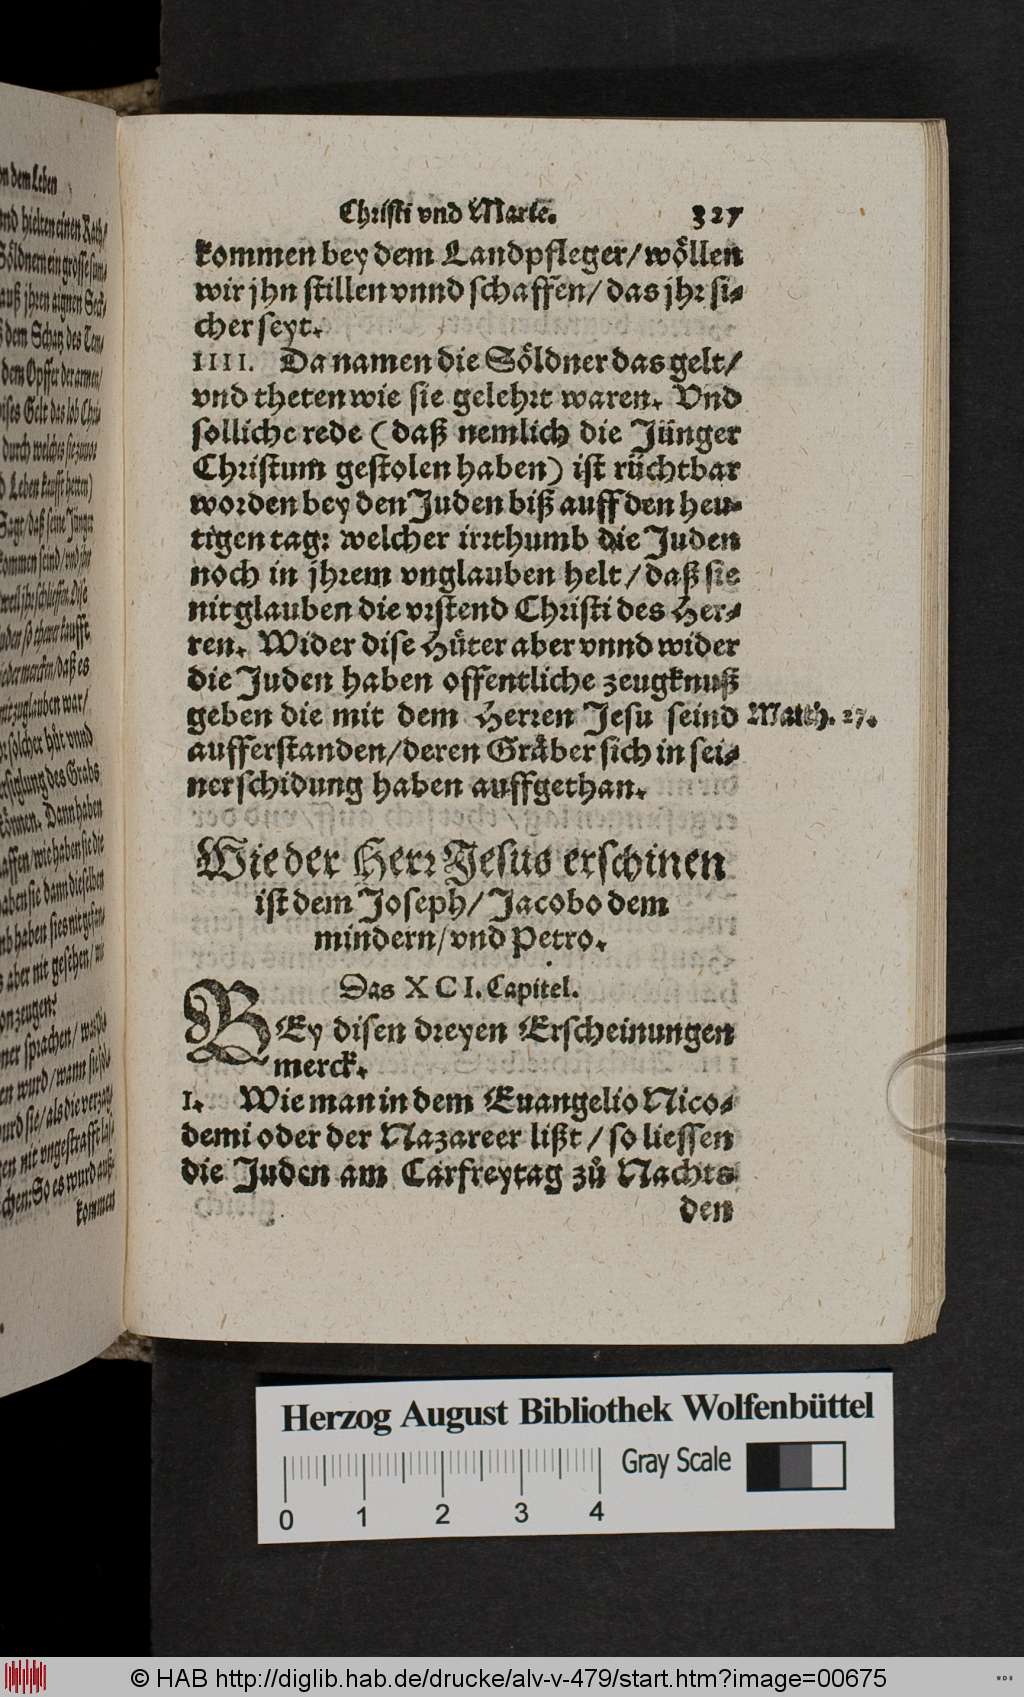 on dem Leben
Christi vnd Marie. 327
kommen bey dem Landpfleger/ wöllen
wir jhn stillen vnnd schaffen/ das jhr si-
cher seyt.
IIII. Da namen die Söldner das gelt/
vnd theten wie sie gelehrt waren. Vnd
solliche rede (daß nemlich die Jünger
Christum gestolen haben) ist rüchtbar
worden bey den Juden biß auff den heu-
tigen tag: welcher irrthumb die Juden
noch in jhrem vnglauben helt/ daß sie
nit glauben die vrstend Christi des Her-
ren. Wider dise Hüter aber vnnd wider
die Juden haben offentliche zeugknuß
geben die mit dem Herren Jesu seind Matth. 27.
aufferstanden/ deren Gräber sich in sei-
ner schidung haben auffgethan.
Wie der Herr Jesus erschinen
ist dem Joseph/ Jacobo dem
mindern/ vnd Petro.
Das XCI. Capitel.
BEy disen dreyen Erscheinungen
merck.
I. Wie man in dem Euangelio Nico-
demi oder der Nazareer lißt/ so liessen
die Juden am Carfreytag zů Nachts
den
nd hielten einen Rath/
Söldnern ein grosse sum-
auß jhren aignen Seck/
dem Schatz des Tem-
dem Opffer der armen/
dises Gelt das lob Chri-
durch welches sie zuuor
Leben kaufft hetten)
Sagt/ daß seine Jünger
kommen seind/ vnd jhn
weil jhr schlieffen. Dise
so thewer kaufft
mercken/ daß es
nit zuglauben war/
solcher hůt vnnd
des Grabs
können. Dann haben
wie haben sie die
haben sie dann dieselben
haben sies nit gesehen
aber nit gesehen/
zeugen?
sprachen/
wurd/ wann sie
wurd sie/ als die verzag-
nit vngestrafft las-
chen: So es wurd auß-
kommen
Herzog August Bibliothek Wolfenbüttel
Gray Scale
0 1 2 3 4
© HAB http://diglib.hab.de/drucke/alv-v-479/start.htm?image=00675